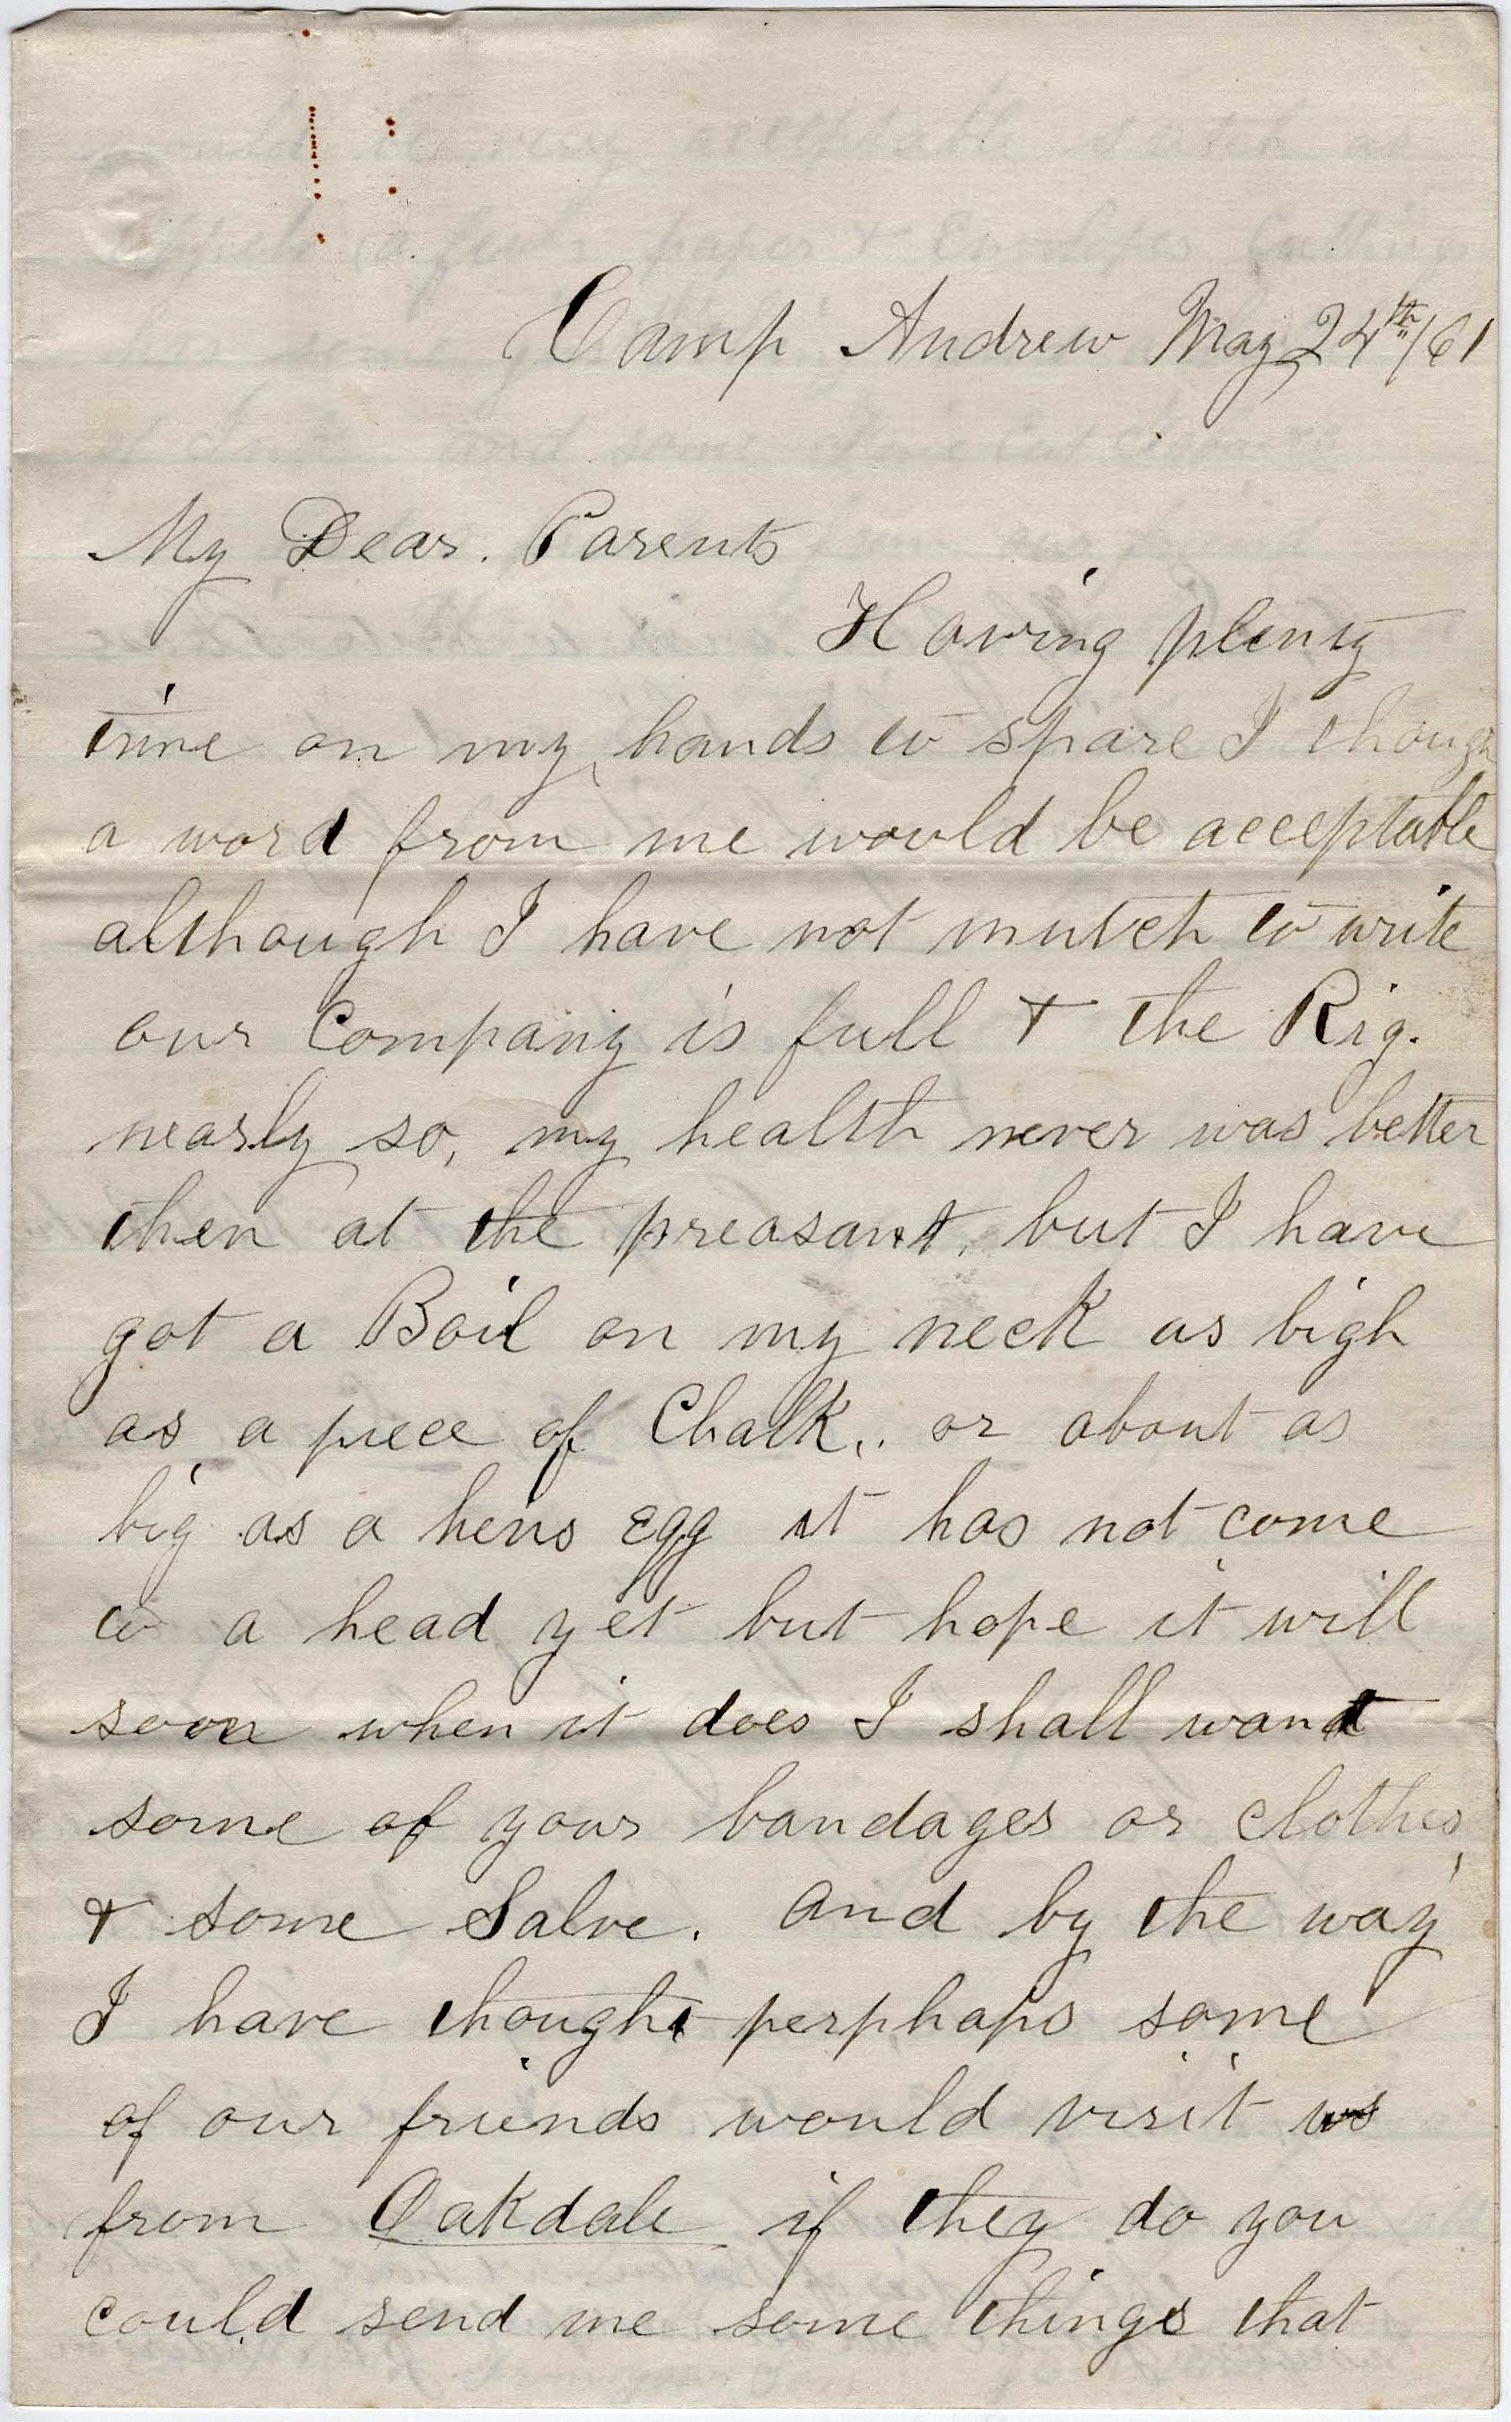 Camp Andrew May 24th/61
My Dear. Parents
Having plenty
time on my hands to spare I though
a word from me would be acceptable
although I have not mutch to write
our Company is full & the Rig.
nearly so, my health never was better
then at the preasant, but I have
got a Boil on my neck as bigh
as a piece of Chalk,. or about as
big as a hens egg it has not come
to a head yet but hope it will
soon when it does I shall want
some of your bandages or clothes
& some Salve. and by the way
I have thought perphaps some
of our friends would visit us
from Oakdale if they do you
could send me some things that